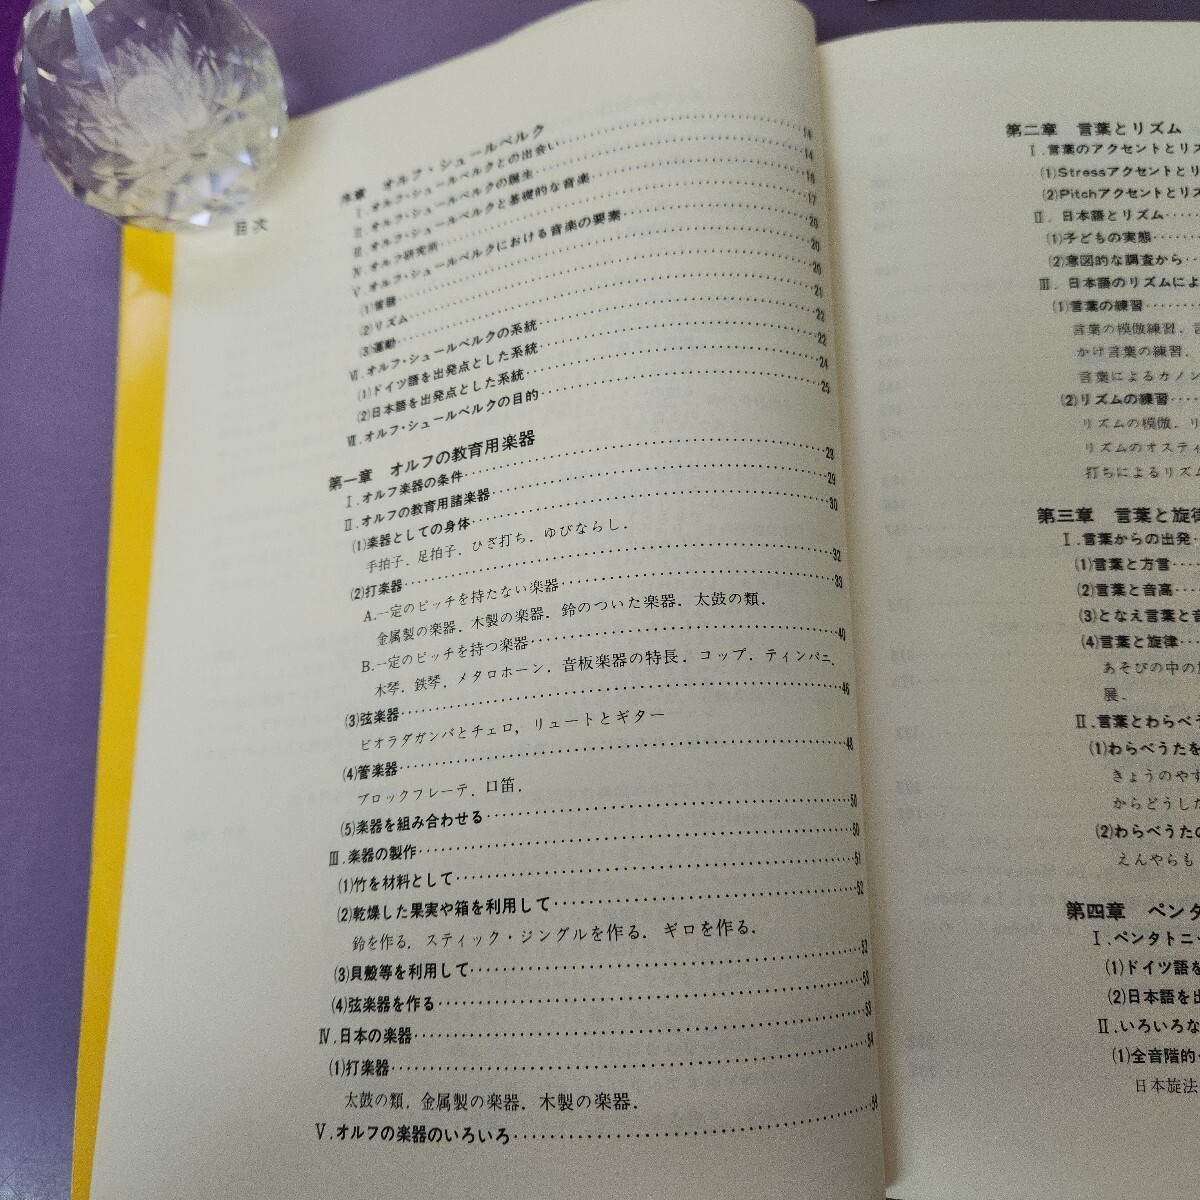 目次
序章　オルフ・シュールベルク
Ⅰ.オルフ・シュールベルクとの出会い……14
Ⅱ.オルフ・シュールベルクの誕生……14
Ⅲ.オルフ・シュールベルクと基礎的な音楽……16
Ⅳ.オルフ研究所……17
Ⅴ.オルフ・シュールベルクにおける音楽の要素……20
(1)言語……20
(2)リズム……20
(3)運動……21
Ⅵ.オルフ・シュールベルクの系統……22
(1)ドイツ語を出発点とした系統……22
(2)日本語を出発点とした系統……24
Ⅶ.オルフ・シュールベルクの目的……25
第一章　オルフの教育用楽器
Ⅰ.オルフ楽器の条件……28
Ⅱ.オルフの教育用諸楽器……29
(1)楽器としての身体……30
手拍子．足拍子．ひざ打ち．ゆびならし．
(2)打楽器……32
A.一定のピッチを持たない楽器……33
金属製の楽器．木製の楽器．鈴のついた楽器．太鼓の類．
B.一定のピッチを持つ楽器……40
木琴．鉄琴．メタロホーン．音板楽器の特長．コップ．ティンパニ．
(3)弦楽器……46
ビオラダガンバとチェロ，リュートとギター
(4)管楽器……48
ブロックフレーテ．口笛．
(5)楽器を組み合わせる……50
Ⅲ.楽器の製作……50
(1)竹を材料として……51
(2)乾燥した果実や箱を利用して……52
鈴を作る．スティック・ジングルを作る．ギロを作る．
(3)貝殻等を利用して……52
(4)弦楽器を作る……53
Ⅳ.日本の楽器……53
(1)打楽器……54
太鼓の類．金属製の楽器．木製の楽器．
Ⅴ.オルフの楽器のいろいろ……
第二章　言葉とリズム
Ⅰ.言葉のアクセントとリズ
(1)Stressアクセントとリ
(2)Pitchアクセントとリズ
Ⅱ.日本語とリズム……
(1)子どもの実態……
(2)意図的な調査から……
Ⅲ.日本語のリズムによ
(1)言葉の練習……
言葉の模倣練習．言
かけ言葉の練習．
言葉によるカノン
(2)リズムの練習……
リズムの模倣．リ
リズムのオスティ
打ちによるリズム
第三章　言葉と旋律
Ⅰ.言葉からの出発……
(1)言葉と方言……
(2)言葉と音高……
(3)となえ言葉と音
(4)言葉と旋律……
あそびの中の
展．
Ⅱ.言葉とわらべう
(1)わらべうたを
きょうのやす
からどうした
(2)わらべうたの
えんやらも
第四章　ペンタ
Ⅰ.ペンタトニッ
(1)ドイツ語を
(2)日本語を出
Ⅱ.いろいろな
(1)全音階的
日本旋法